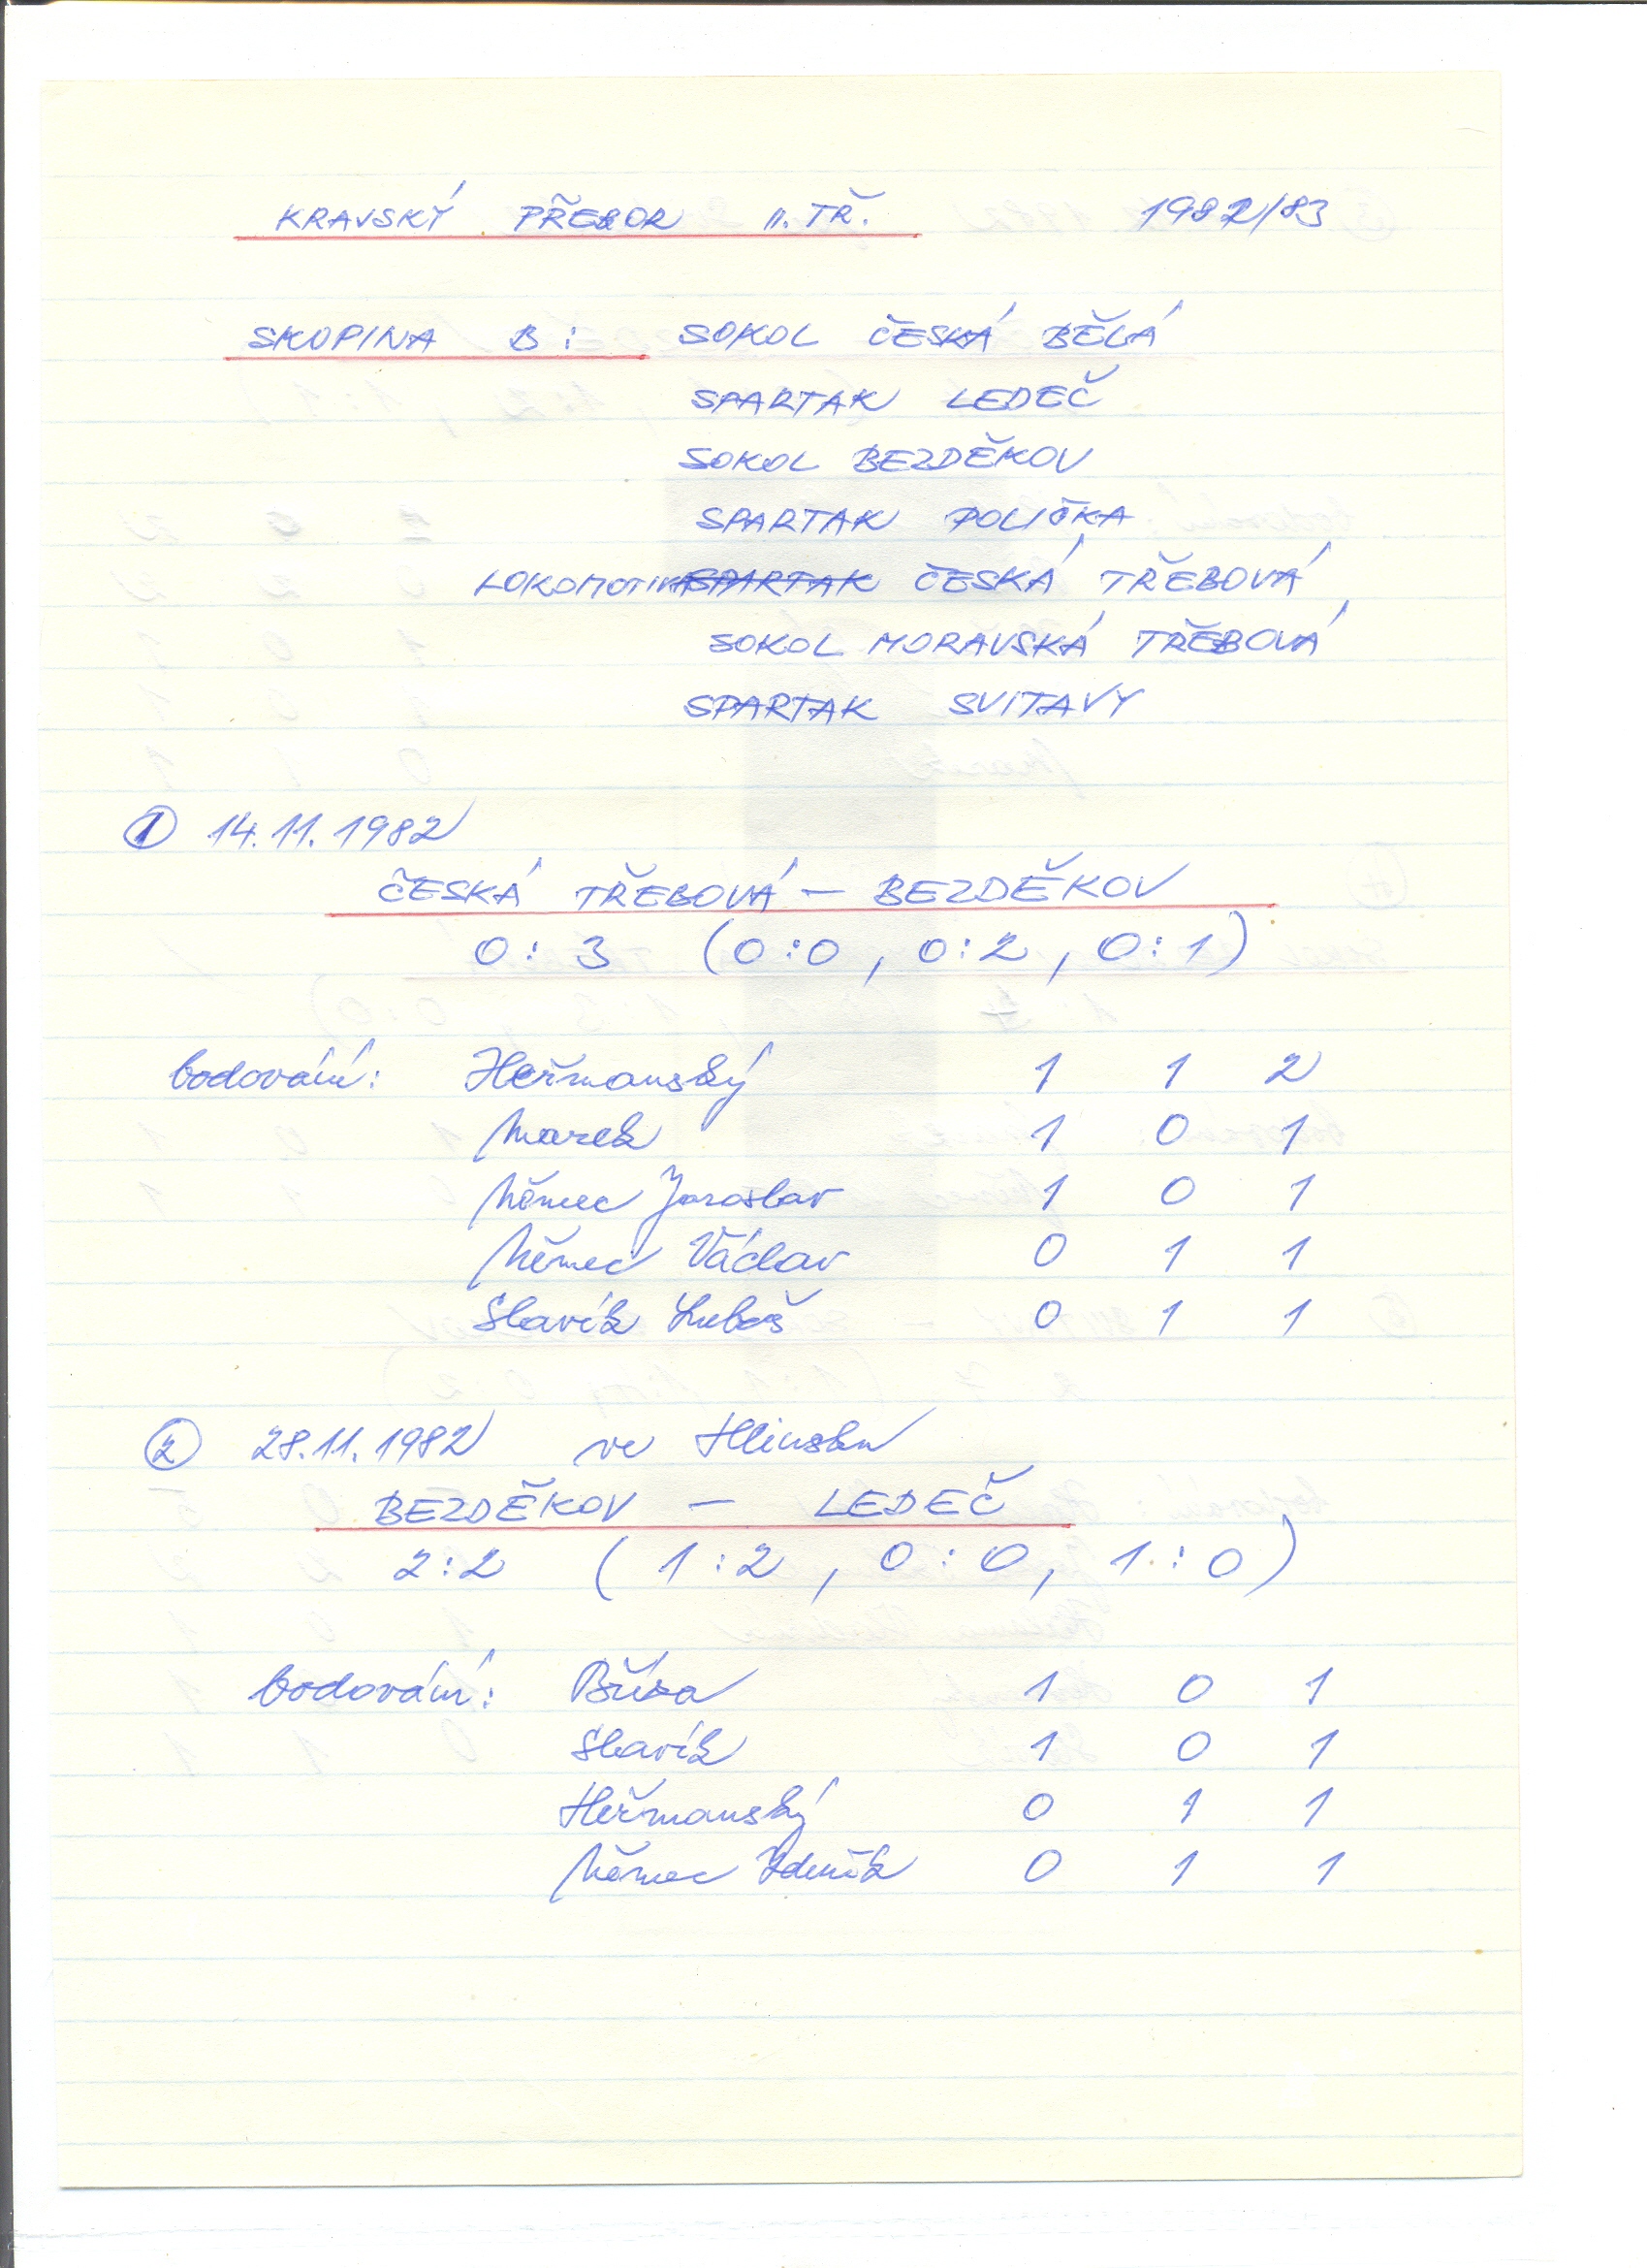 KRAJSKÝ PŘEBOR II. TŘ. 1982/83
SKUPINA B: SOKOL ČESKÁ BĚLÁ
SPARTAK LEDEČ
SOKOL BEZDĚKOV
SPARTAK POLIČKA
LOKOMOTIVA SPARTAK ČESKÁ TŘEBOVÁ
SOKOL MORAVSKÁ TŘEBOVÁ
SPARTAK SVITAVY
1 14.11.1982
ČESKÁ TŘEBOVÁ – BEZDĚKOV
0:3 (0:0, 0:2, 0:1)
bodování: Heřmanský 1 1 2
Marek 1 0 1
Němec Jaroslav 1 0 1
Němec Václav 0 1 1
Slavík Luboš 0 1 1
2 28.11.1982 ve Hlinsku
BEZDĚKOV – LEDEČ
2:2 (1:2, 0:0, 1:0)
bodování: Bříza 1 0 1
Slavík 1 0 1
Heřmanský 0 1 1
Němec Zdeněk 0 1 1